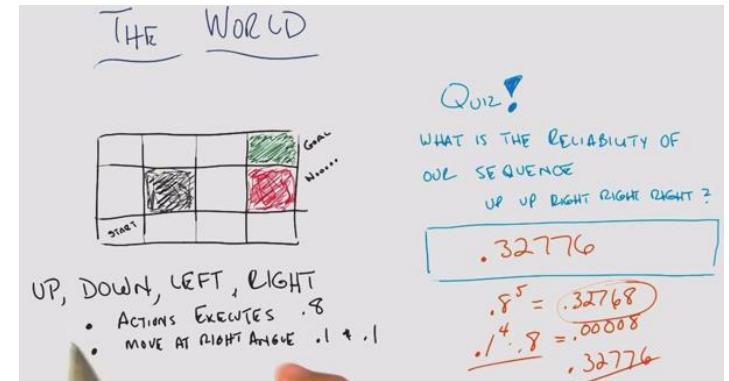 THE WORLD
GOAL
START
UP, DOWN, LEFT, RIGHT
• ACTIONS EXECUTES .8
• MOVE AT RIGHT ANGLE .1 + .1
QUIZ!
WHAT IS THE RELIABILITY OF
OUR SEQUENCE
UP UP RIGHT RIGHT RIGHT ?
.32776
.8⁵ = .32768
.1⁴ . .8 = .00008
.32776